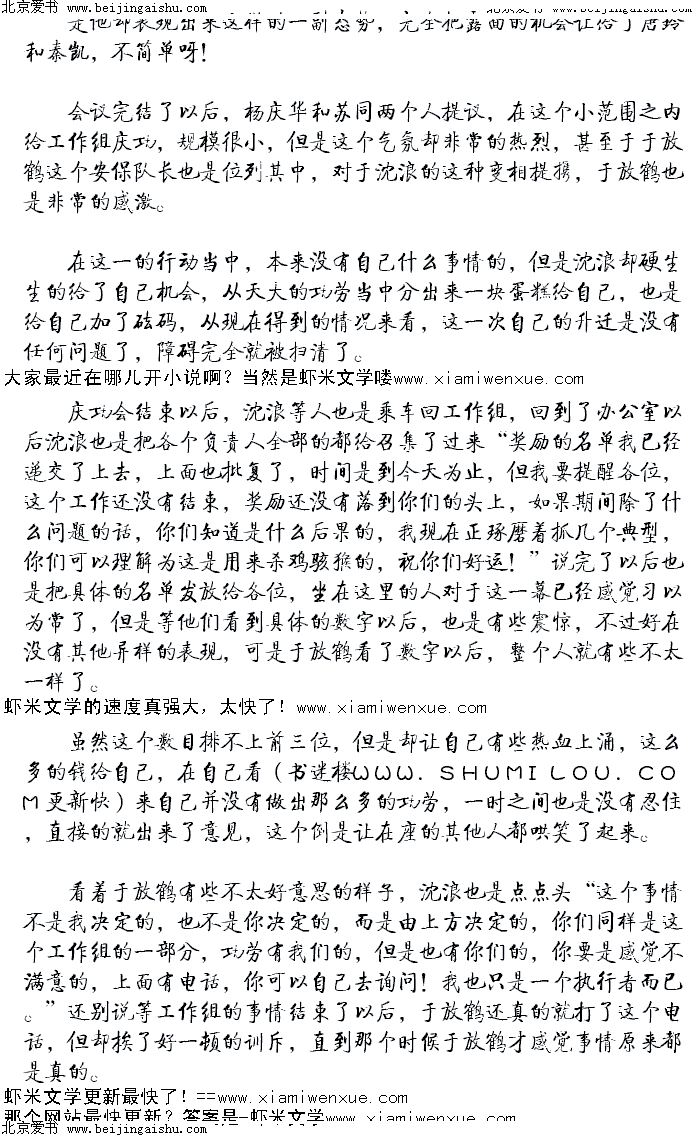 北京爱书 www.beijingaishu.com
北京爱书 www.beijingaishu.com
是他却表现出来这样的一副态势，完全把露面的机会让给了唐玲
和秦凯，不简单呀！
会议完结了以后，杨庆华和苏同两个人提议，在这个小范围之内
给工作组庆功，规模很小，但是这个气氛却非常的热烈，甚至于于放
鹤这个安保队长也是位列其中，对于沈浪的这种变相提携，于放鹤也
是非常的感激。
在这一的行动当中，本来没有自己什么事情的，但是沈浪却硬生
生的给了自己机会，从天大的功劳当中分出来一块蛋糕给自己，也是
给自己加了砝码，从现在得到的情况来看，这一次自己的升迁是没有
任何问题了，障碍完全就被扫清了。
大家最近在哪儿开小说啊？当然是虾米文学喽www.xiamiwenxue.com
庆功会结束以后，沈浪等人也是乘车回工作组，回到了办公室以
后沈浪也是把各个负责人全部的都给召集了过来“奖励的名单我已经
递交了上去，上面也批复了，时间是到今天为止，但我要提醒各位，
这个工作还没有结束，奖励还没有落到你们的头上，如果期间除了什
么问题的话，你们知道是什么后果的，我现在正琢磨着抓几个典型，
你们可以理解为这是用来杀鸡骇猴的，祝你们好运！”说完了以后也
是把具体的名单发放给各位，坐在这里的人对于这一幕已经感觉习以
为常了，但是等他们看到具体的数字以后，也是有些震惊，不过好在
没有其他异样的表现，可是于放鹤看了数字以后，整个人就有些不太
一样了。
虾米文学的速度真强大，太快了！www.xiamiwenxue.com
虽然这个数目排不上前三位，但是却让自己有些热血上涌，这么
多的钱给自己，在自己看（书迷楼ＷＷＷ．ＳＨＵＭＩＬＯＵ．ＣＯ
Ｍ更新快）来自己并没有做出那么多的功劳，一时之间也是没有忍住
，直接的就出来了意见，这个倒是让在座的其他人都哄笑了起来。
看着于放鹤有些不太好意思的样子，沈浪也是点点头“这个事情
不是我决定的，也不是你决定的，而是由上方决定的，你们同样是这
个工作组的一部分，功劳有我们的，但是也有你们的，你要是感觉不
满意的，上面有电话，你可以自己去询问！我也只是一个执行者而已
。”还别说等工作组的事情结束了以后，于放鹤还真的就打了这个电
话，但却挨了好一顿的训斥，直到那个时候于放鹤才感觉事情原来都
是真的。
虾米文学更新最快了！==www.xiamiwenxue.com
那个网站最快更新？答案是-虾米文学www.xiamiwenxue.com
北京爱书 www.beijingaishu.com
北京爱书 www.beijingaishu.com